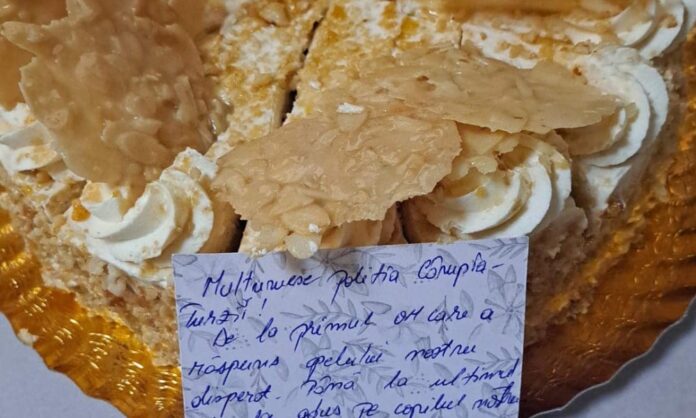 Multumesc poliția Câmpia-
Turzii!
De la primul om care a
răspuns apelului nostru
disperat. Până la ultimul
a adus pe copilul nostru